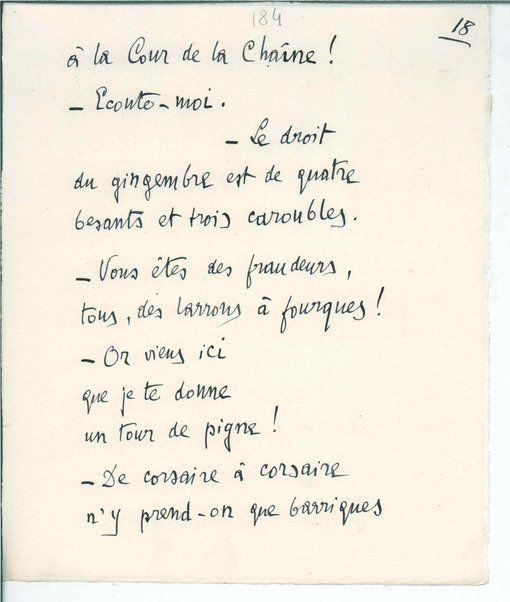 184
18
à la Cour de la Chaîne !
— Ecoute-moi.
— Le droit
du gingembre est de quatre
besants et trois caroubles.
— Vous êtes des fraudeurs,
tous, des larrons à fourques !
— Or viens ici
que je te donne
un tour de pigne !
— De corsaire à corsaire
n'y prend-on que barriques